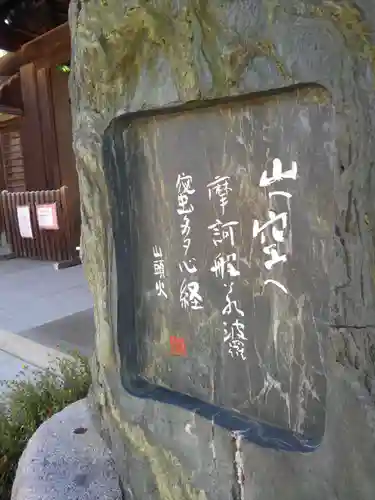 山へ空へ
摩訶般若波羅
蜜多心経
山頭火